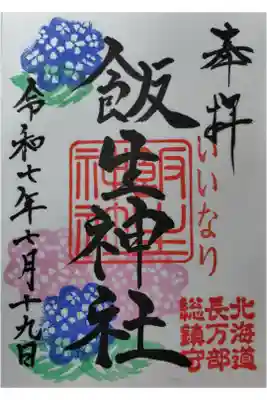 奉拝
いいなり
北海道
長万部
総鎮守
飯生神社
飯生
神社
令和七年七月十九日